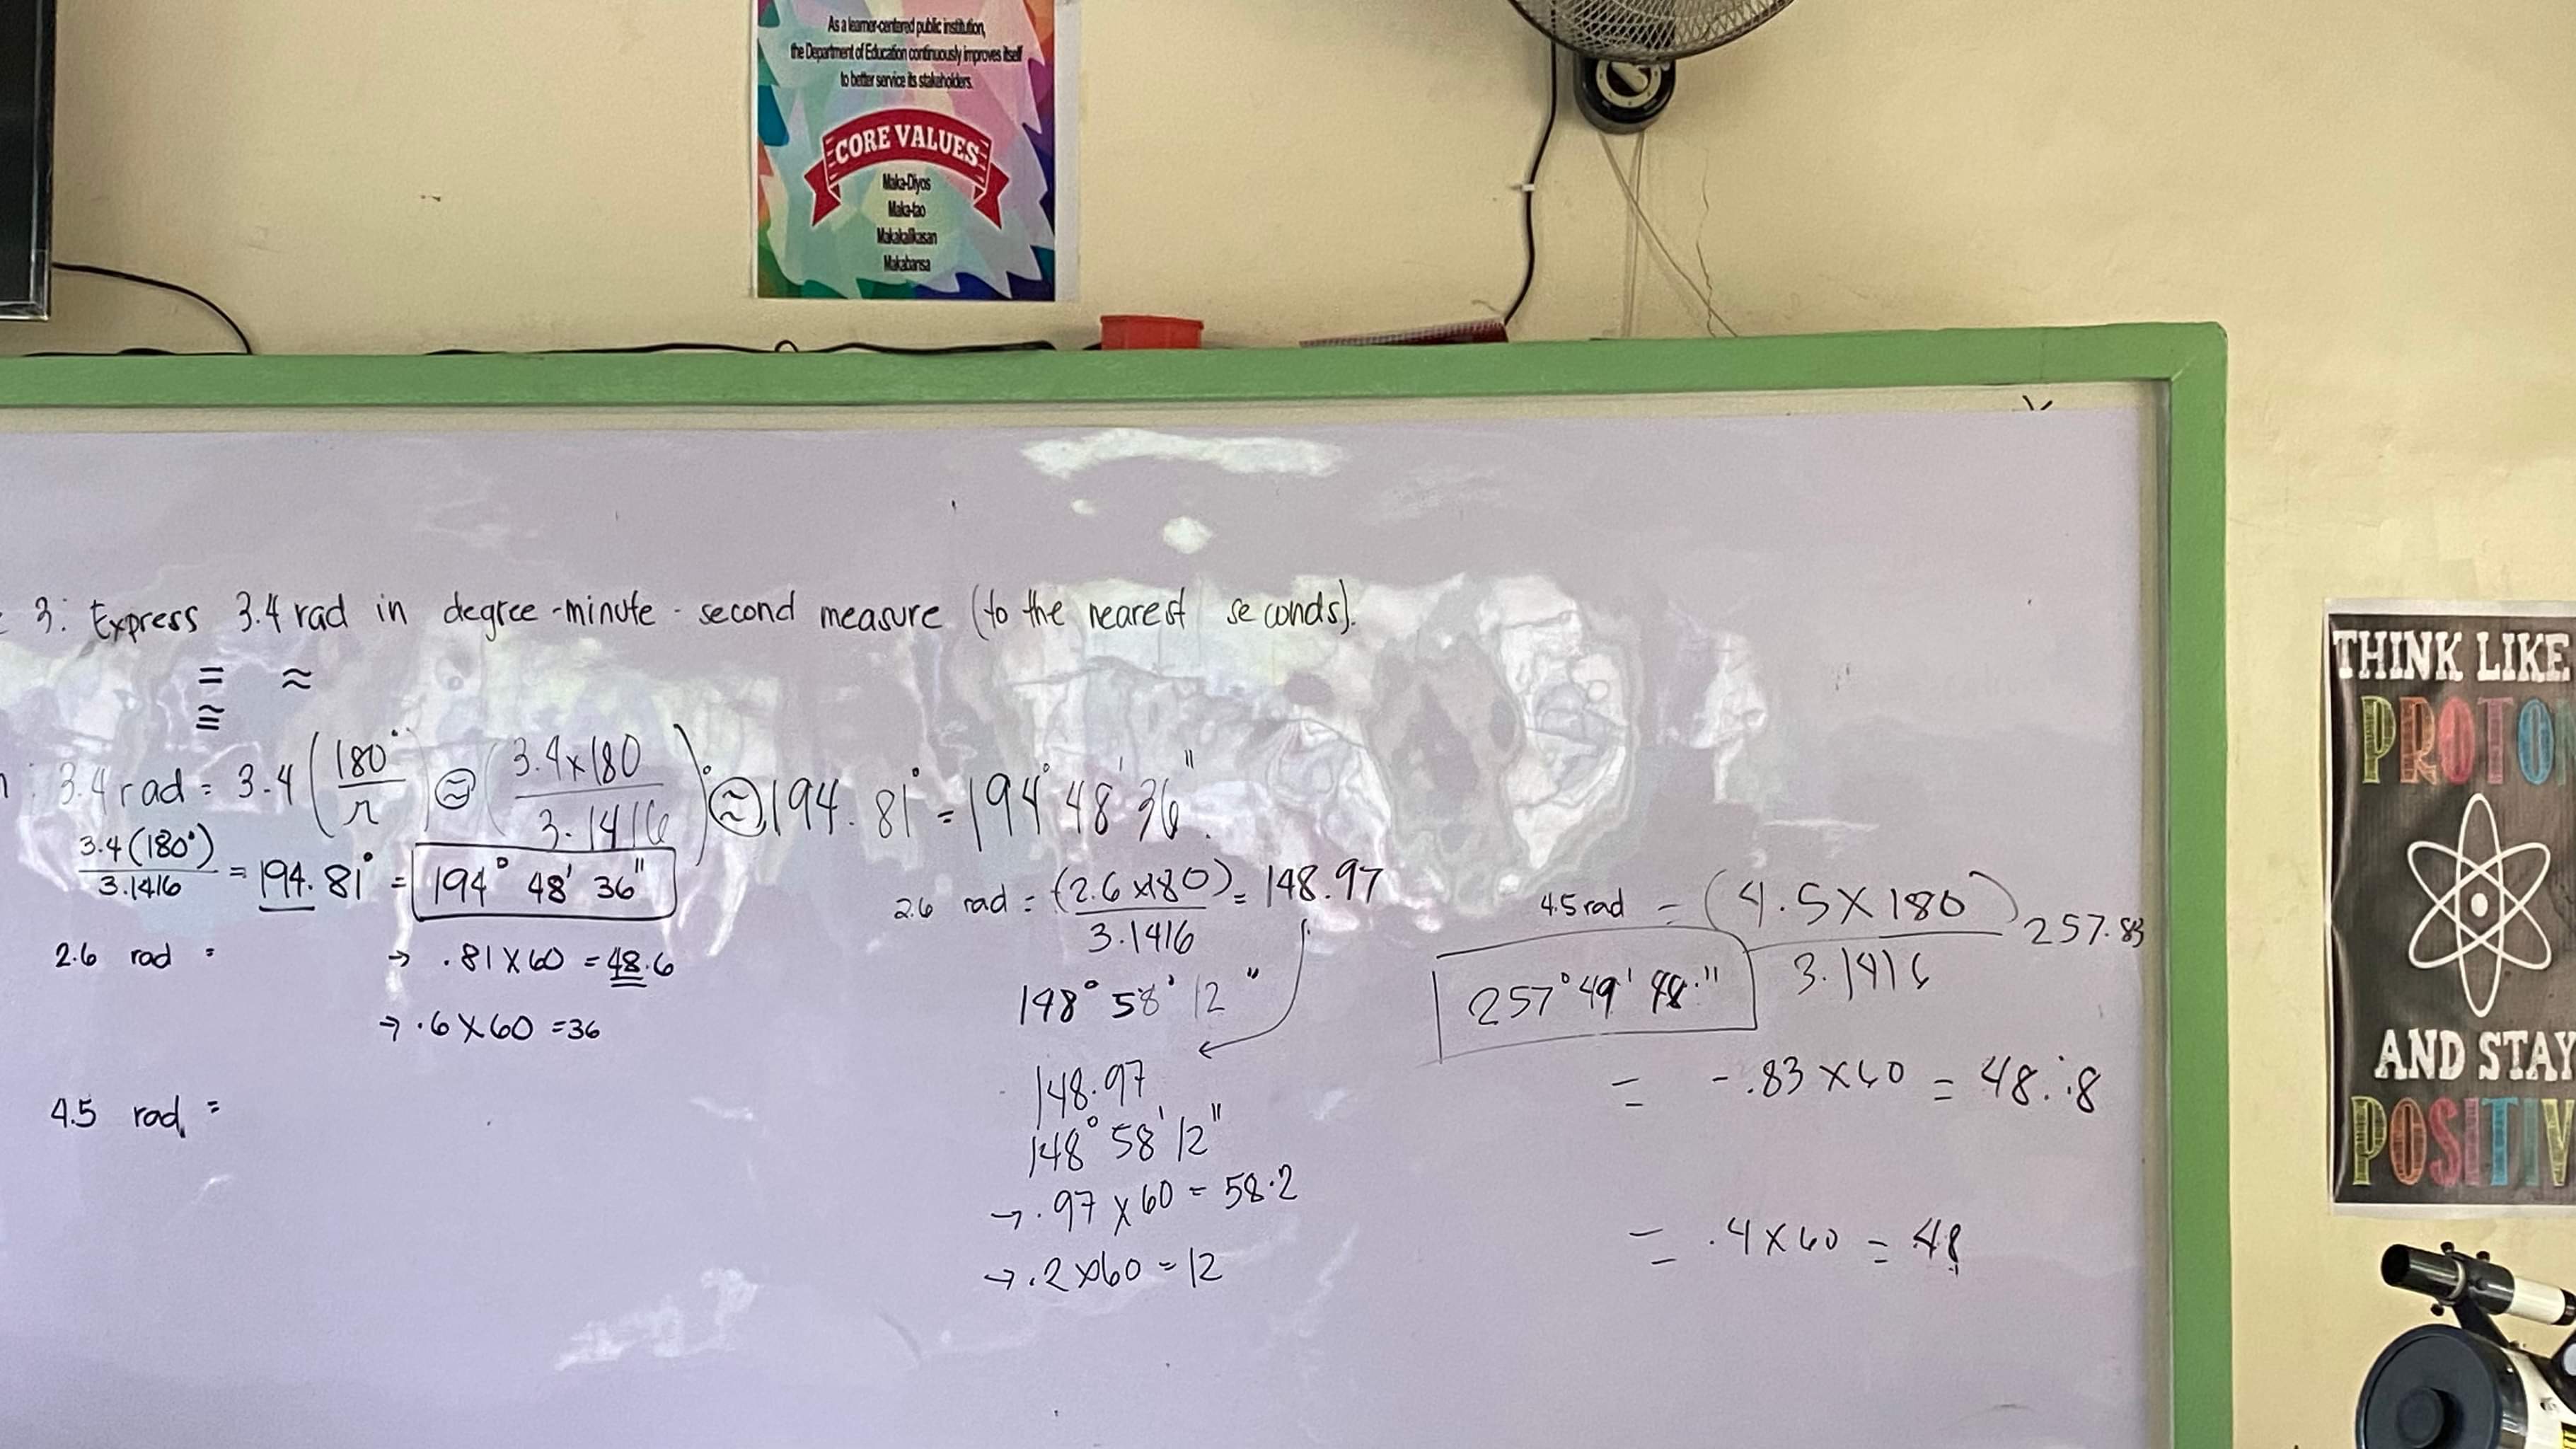 As a learner-centered public institution,
the Department of Education continuously improves itself
to better service its stakeholders.
CORE VALUES
Maka-Diyos
Maka-tao
Makakalikasan
Makabansa
3: Express 3.4 rad in degree-minute-second measure (to the nearest seconds).
= ≈
≅
3.4 rad = 3.4 (180°/π) ≈ (3.4x180/3.1416)° ≈ 194.81° = 194° 48' 36".
3.4(180°)/3.1416 = 194.81° = 194° 48' 36"
2.6 rad =
→ .81 x 60 = 48.6
→ .6 x 60 = 36
4.5 rad =
2.6 rad = (2.6 x180)/3.1416 = 148.97
148° 58' 12"
148.97
148° 58' 12"
→ .97 x 60 = 58.2
→ .2 x60 = 12
4.5 rad = (4.5 X 180)/3.1416 257.83
257° 49' 48."
= -.83 x 60 = 48..8
= .4 x 60 = 48
THINK LIKE
PROTO
AND STAY
POSITIV